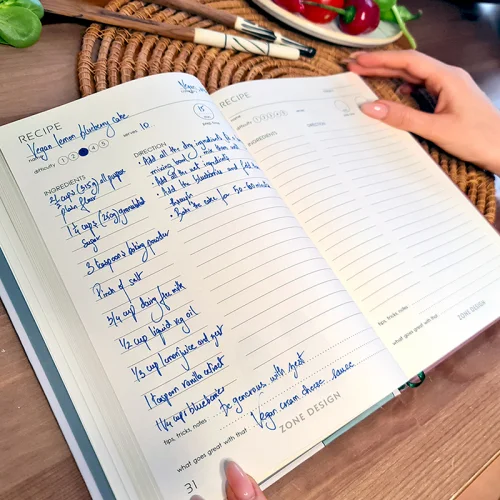 RECIPE
Vegan
name Vegan lemon blueberry cake
difficulty 1 2 4 5 serves 10
15
INGREDIENTS
2 1/2 cups (315g) all purpose
plain flour
1 1/4 cups (250g) granulated
sugar
3 teaspoons baking powder
Pinch of salt
3/4 cup dairy free milk
1/2 cup liquid veg oil
1/3 cup lemon juice and zest
1 teaspoon vanilla extract
1 1/4 cups blueberries
DIRECTION
• Add all the dry ingredients to a
mixing bowl, mix them well
• Add all the wet ingredients
• Add the blueberries and fold
through
• Bake the cake for 50-60 minutes
tips, tricks, notes be generous with zest
what goes great with that Vegan cream cheese sauce
ZONE DESIGN
31
RECIPE
name
difficulty
INGREDIENTS
DIRECTION
tips, tricks, notes
what goes great with that
ZONE DESIGN